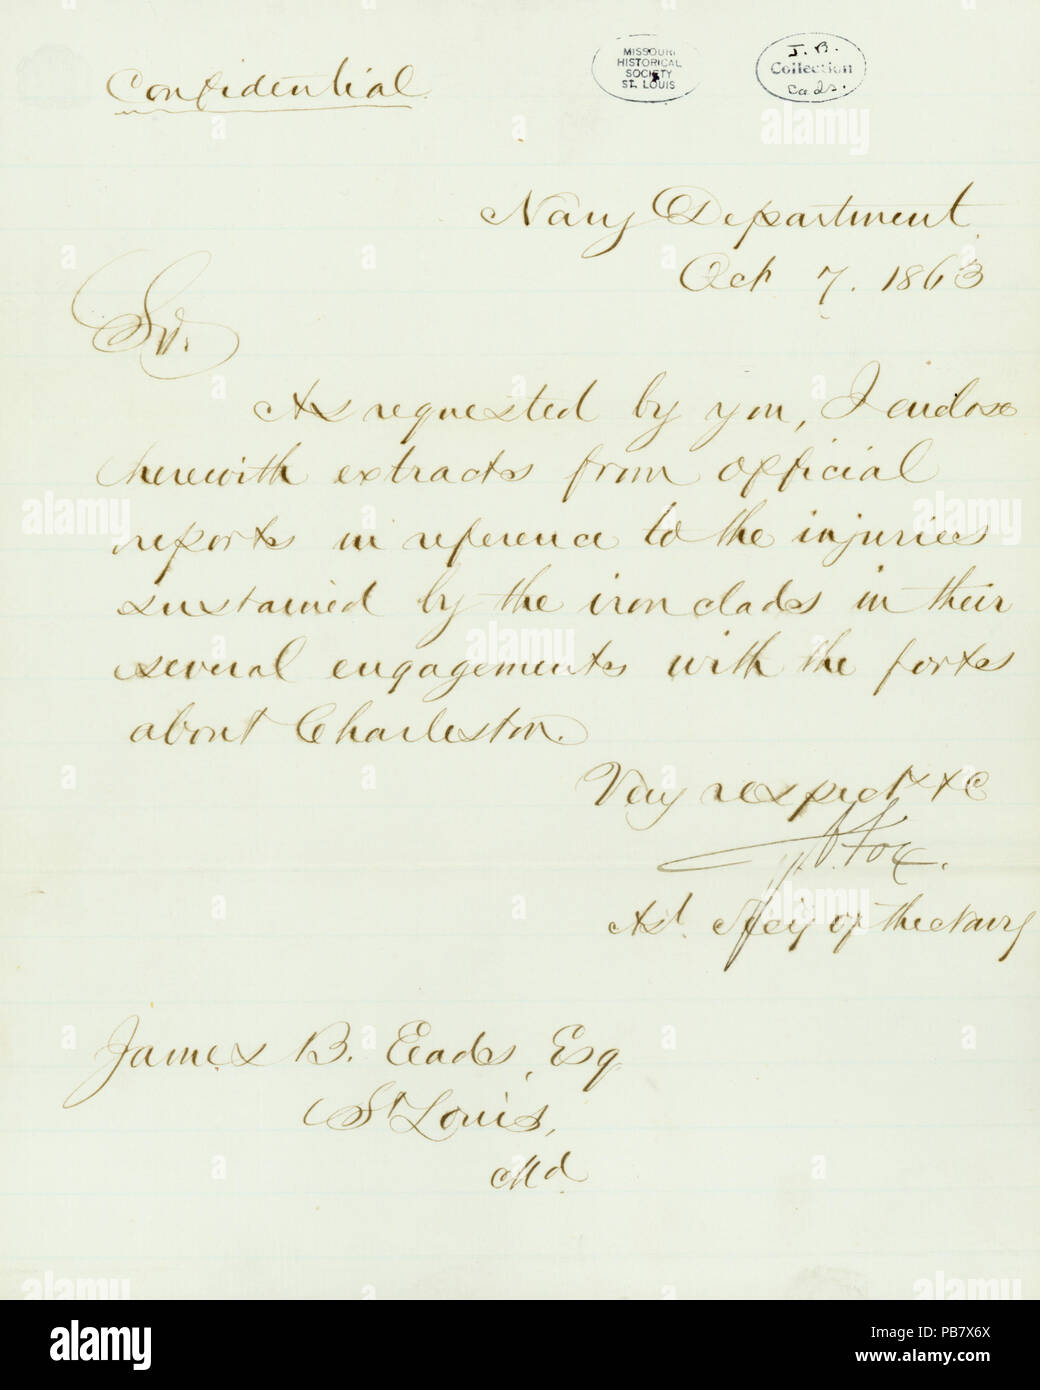 Confidential
MISSOURI
HISTORICAL
SOCIETY
ST. LOUIS
J. B.
Collection
Eads.
Navy Department.
Oct 7. 1863
Sir.
As requested by you, I enclose
herewith extracts from official
reports in reference to the injuries
sustained by the iron clads in their
several engagements with the forts
about Charleston.
Very respect &c
G. V. Fox.
Ast. Secy of the Navy
James B. Eads, Esq
St Louis,
Md.
alamy
Image ID: PB7X6X
www.alamy.com